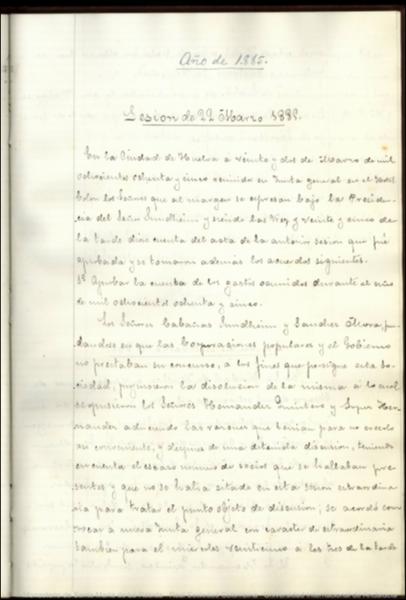 Año de 1885.
Sesion de 22 Marzo 1885.
En la Ciudad de Huelva a veinte y dos de Marzo de mil
ochocientos ochenta y cinco reunido en Junta general en el Hotel
Colon los Señores que al margen se expresan bajo la Presiden-
cia del Señor Sundheim y siendo las tres y veinte y cinco de
la tarde diose cuenta del acta de la anterior sesion que fué
aprobada y se tomaron además los acuerdos siguientes.
1º Aprobar la cuenta de los gastos ocurridos durante el año
de mil ochocientos ochenta y cinco.
Los Señores Cabañas Sundheim y Sanchez Mora, fun-
dandose en que las Corporaciones populares y el Gobierno
no prestaban su concurso, a los fines que persigue esta So-
ciedad, propusieron la disolucion de la misma á lo cual
se opusieron los Señores Hernandez Quintero y Lopez Her-
nandez aduciendo las razones que tenian para no creerlo
asi conveniente, y despues de una detenida discusion, teniendo
en cuenta el escaso numero de socios que se hallaban pre-
sentes y que no se habia citado en esta sesion extraordina-
ria para tratar el punto objeto de discusion; se acordó con-
vocar a nueva Junta general con caracter de extraordinaria
tambien para el miercoles veinticinco a las tres de la tarde